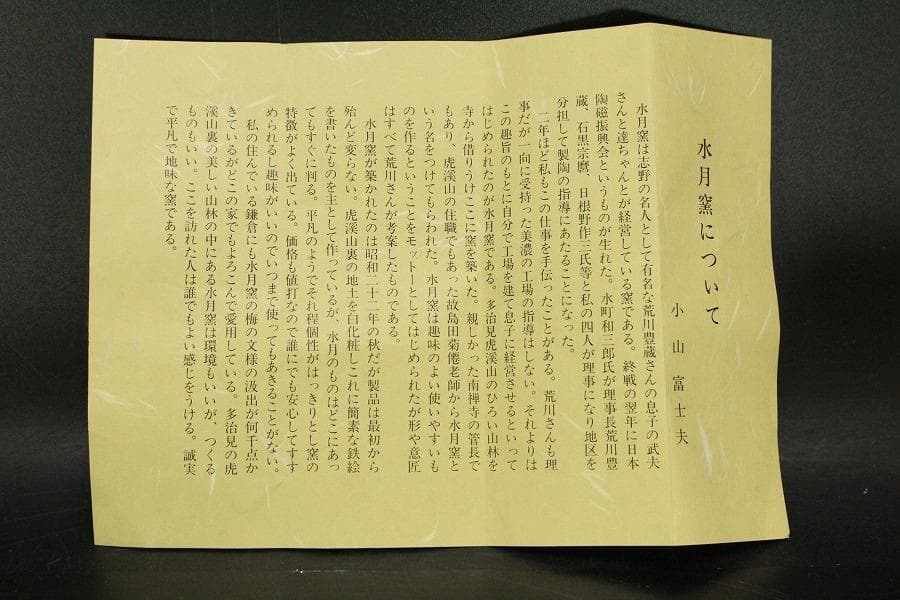 水月窯について
小山富士夫
水月窯は志野の名人として有名な荒川豊蔵さんの息子の武夫
さんと達ちゃんとが経営している窯である。終戦の翌年に日本
陶磁振興会というものが生れた。水町和三郎氏が理事長荒川豊
蔵、石黒宗麿、日根野作三氏等と私の四人が理事になり地区を
分担して製陶の指導にあたることになった。
二年ほど私もこの仕事を手伝ったことがある。荒川さんも理
事だが一向に受持った美濃の工場の指導はしない。それよりは
この趣旨のもとに自分で工場を建て息子に経営させるといって
はじめられたのが水月窯である。多治見虎渓山のひろい山林を
寺から借りうけここに窯を築いた。親しかった南禅寺の管長で
もあり、虎渓山の住職でもあった故島田菊僊老師から水月窯と
いう名をつけてもらわれた。水月窯は趣味のよい使いやすいも
のを作るということをモットーとしてはじめられたが形や意匠
はすべて荒川さんが考案したものである。
水月窯が築かれたのは昭和二十一年の秋だが製品は最初から
殆んど変らない。虎渓山裏の地土を白化粧しこれに簡素な鉄絵
を書いたものを主として作っているが、水月のものはどこにあっ
てもすぐに判る。平凡のようでそれ程個性がはっきりとし窯の
特徴がよく出ている。価格も値打なので誰にでも安心してすす
められるし趣味がいいのでいつまで使ってもあきることがない。
私の住んでいる鎌倉にも水月窯の梅の文様の汲出が何千点か
きているがどこの家でもよろこんで愛用している。多治見の虎
渓山裏の美しい山林の中にある水月窯は環境もいいが、つくる
ものもいい。ここを訪れた人は誰でもよい感じをうける。誠実
で平凡で地味な窯である。